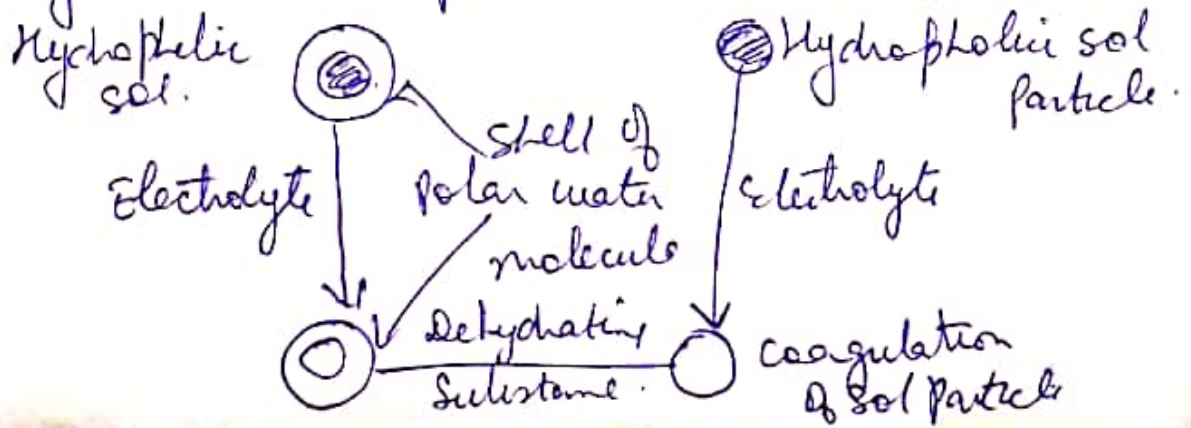 Hydrophilic
sol.
Hydrophobic sol
Particle.
Electrolyte
Shell of
Polar water
molecule
Electrolyte
Dehydrating
Substance.
coagulation
of Sol Particle